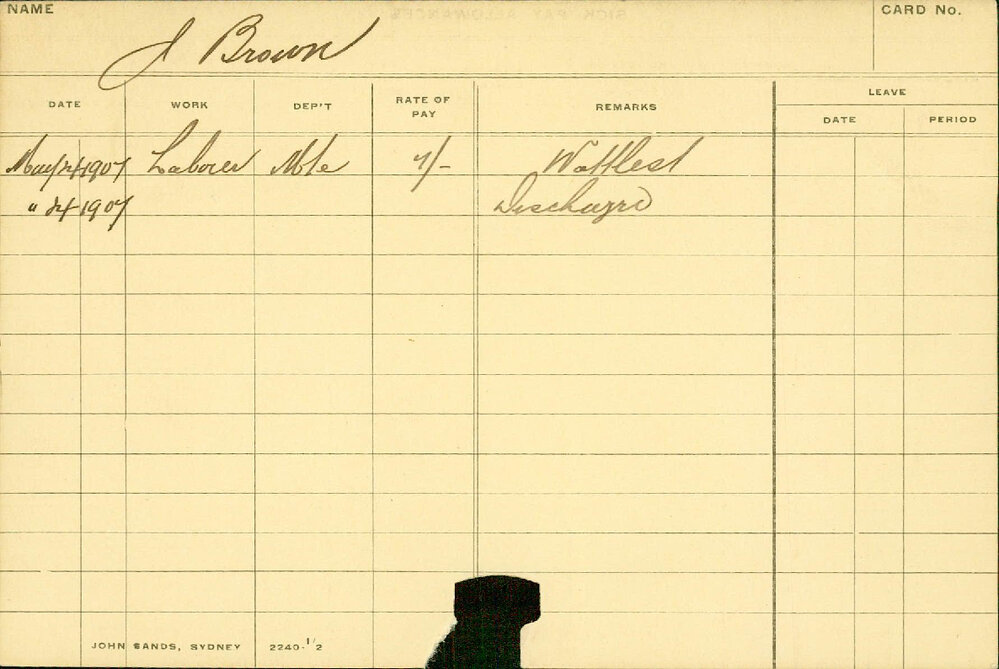 NAME
CARD No.
J Brown
DATE WORK DEP'T RATE OF PAY REMARKS LEAVE
DATE PERIOD
May 24 1907 Laborer Mte 7/- Wattle St
" 24 1907 Discharged
JOHN SANDS, SYDNEY 2240-1/2